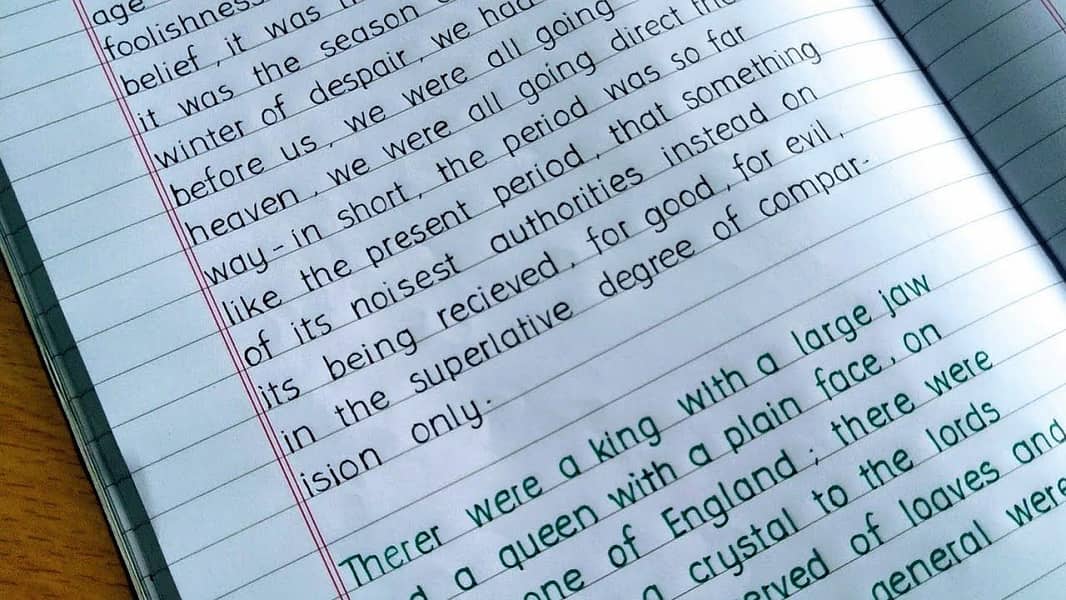 age
foolishness
belief, it was
it was the season
winter of despair, we had
before us, we were all going
heaven, we were all going direct
way-in short, the period was so far
like the present period, that something
of its noisest authorities instead on
its being recieved, for good, for evil,
in the superlative degree of compar-
ision only.
Therer were a king with a large jaw
a queen with a plain face, on
of England; there were
crystal to the lords
of loaves and
general were